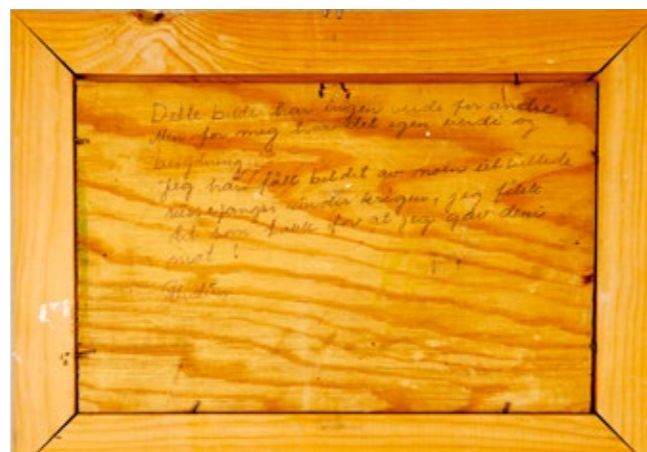 Dette bilde har ingen verdi for andre
Men for meg har det egen verdi og
betydning.
Jeg har fått bildet av noen
russefanger under krigen, jeg fikk
det som takk for at jeg gav dem
mat!